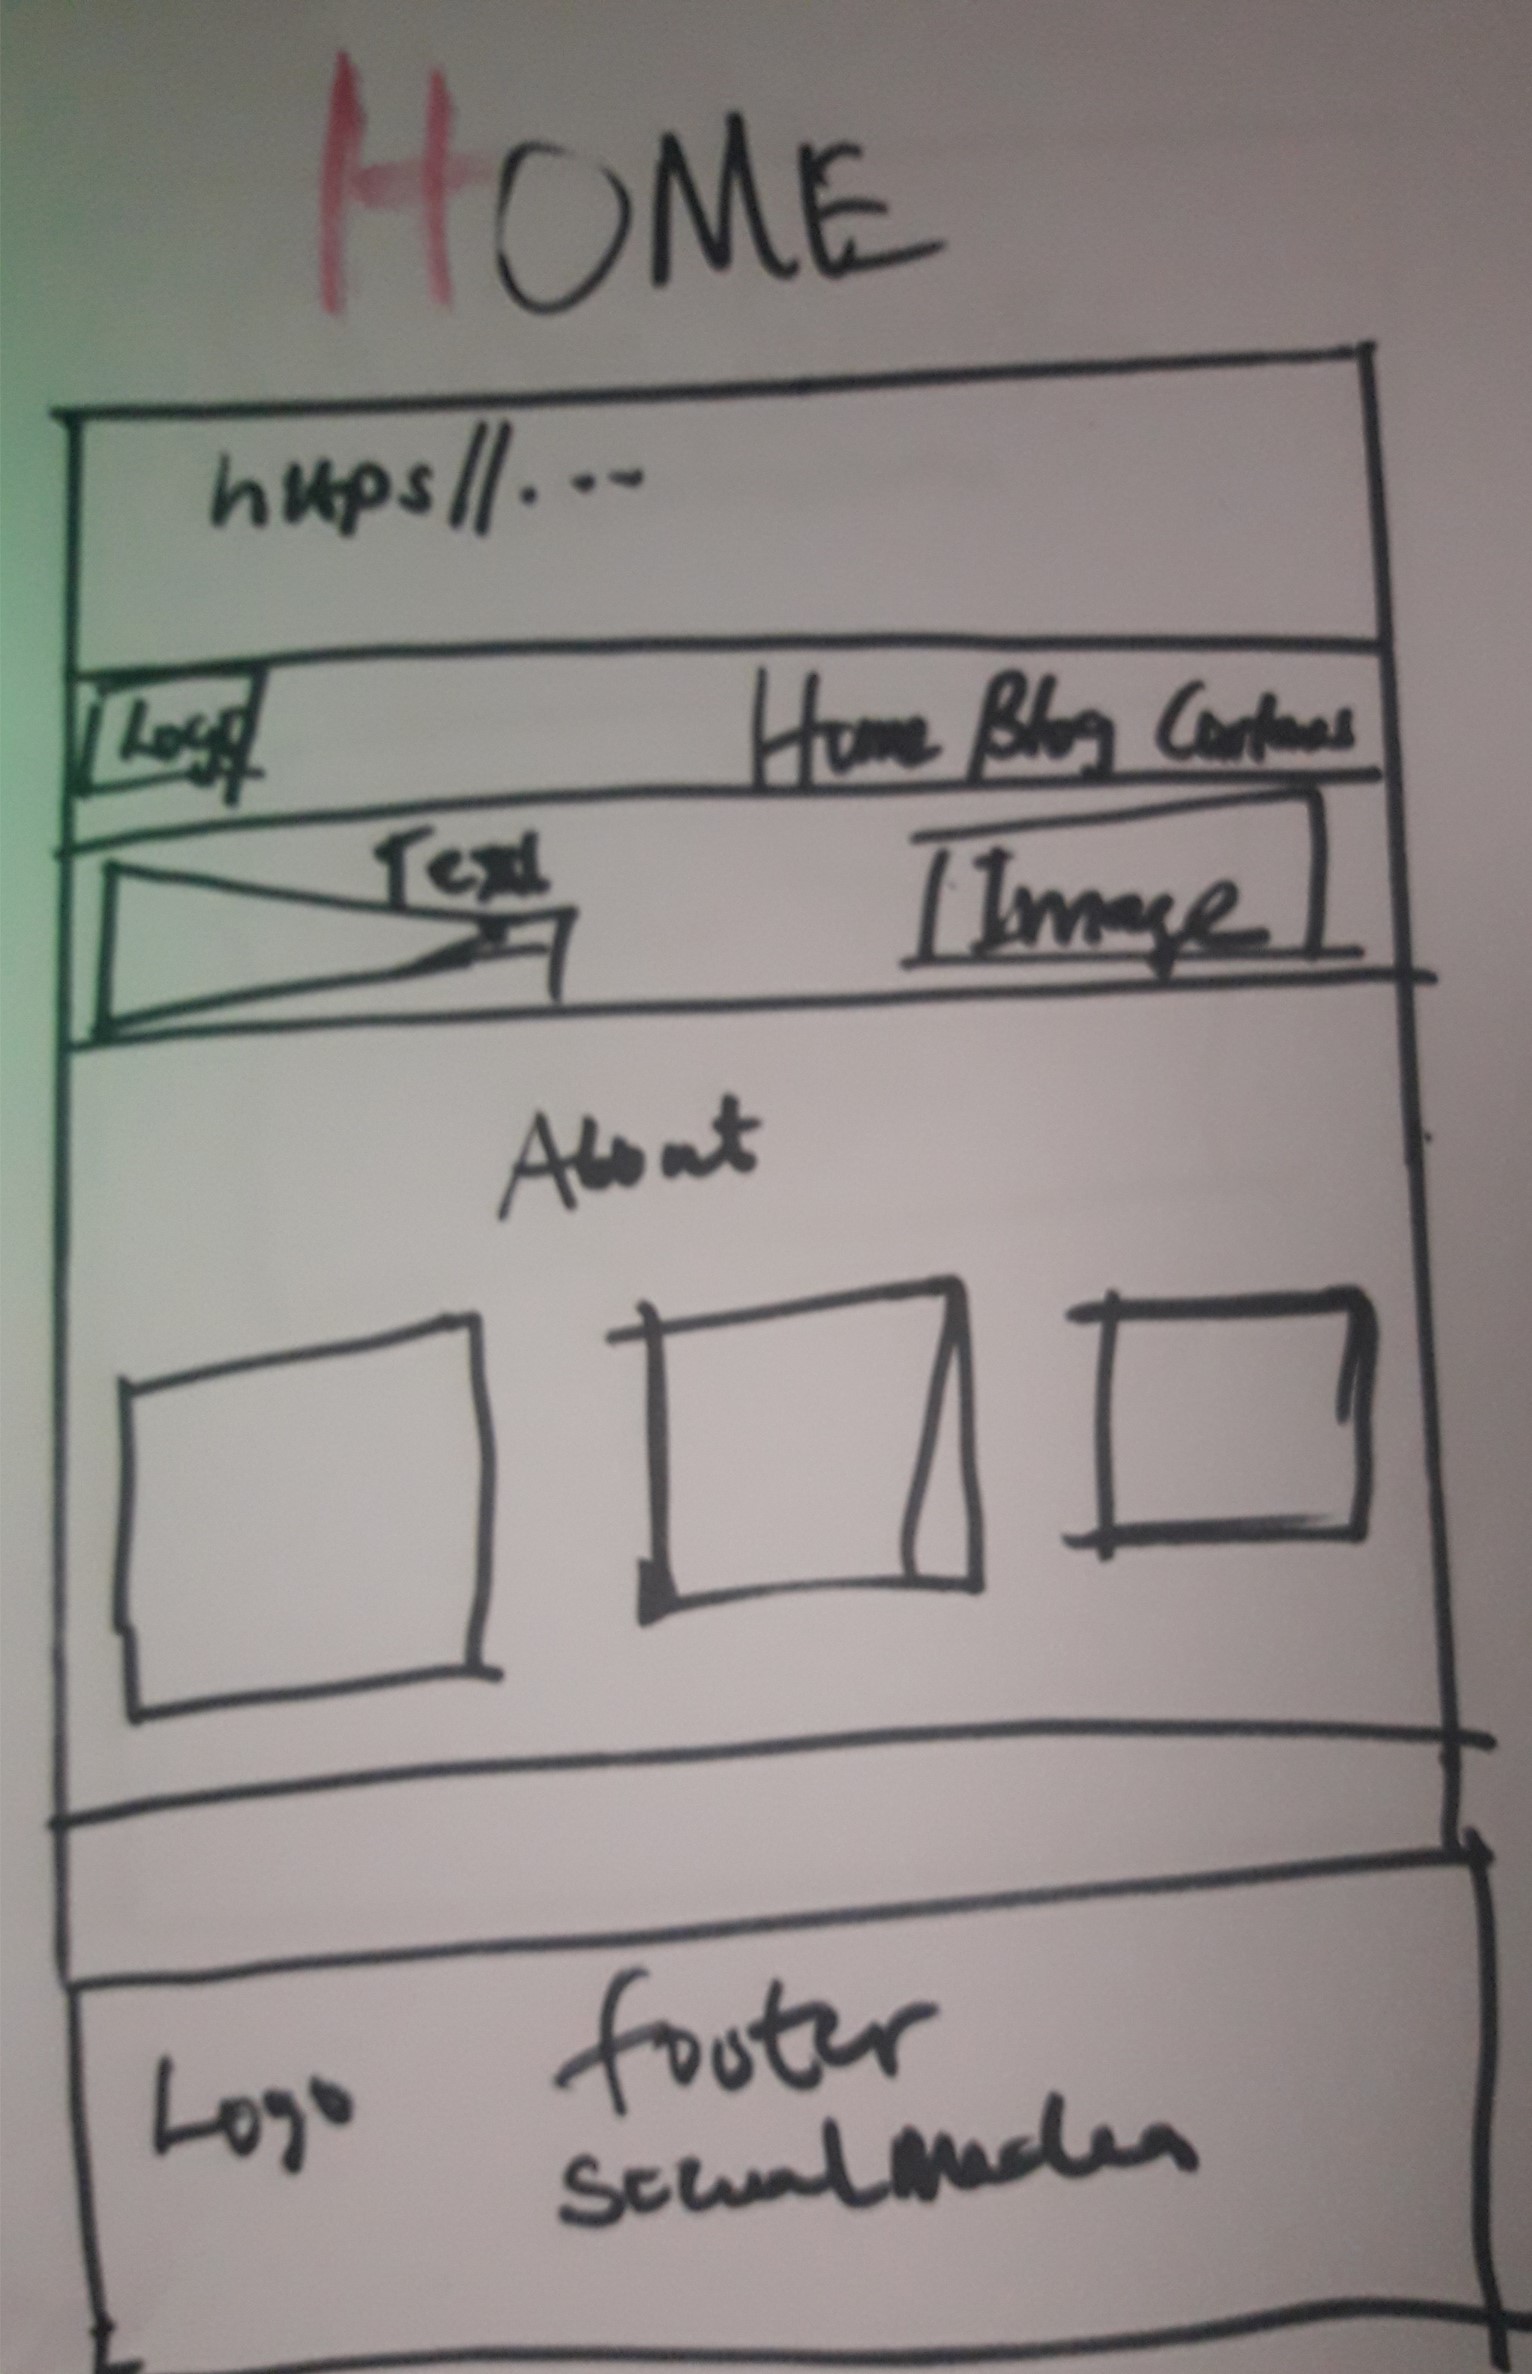 HOME
https//....
Logo
Home Blog Contact
Text
Image
About
Logo
footer
Social Media